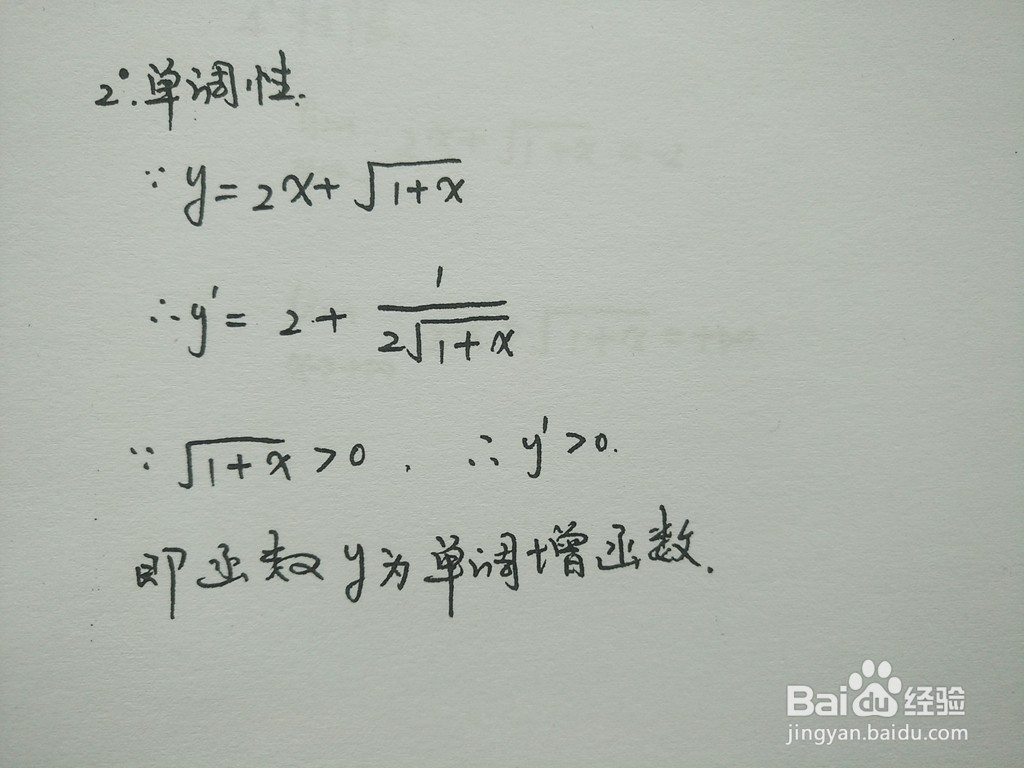 2°.单调性.
∵ y = 2x + √(1+x)
∴ y' = 2 + 1/(2√(1+x))
∵ √(1+x) > 0 . ∴ y' > 0.
即函数y为单调增函数.
Baidu经验
jingyan.baidu.com